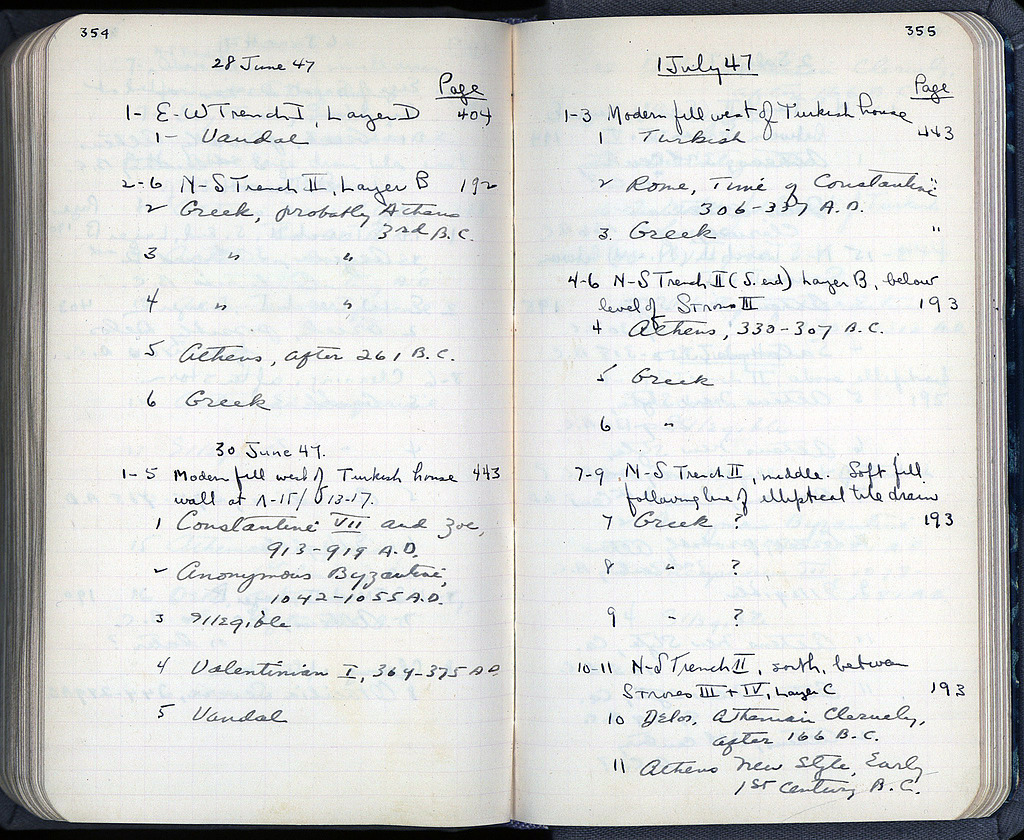 354
28 June 47
Page
1- E-W Trench I, Layer D 404
1- Vandal
2-6 N-S Trench II, Layer B 192
2 Greek, probably Athens
3rd B.C.
3 " "
4 " "
5 Athens, after 261 B.C.
6 Greek
30 June 47.
1-5 Modern fill west of Turkish house 443
wall at Λ-15/ 13-17.
1 Constantine VII and Zoe,
913-919 A.D.
2 Anonymous Byzantine,
1042-1055 A.D.
3 Illegible
4 Valentinian I, 364-375 A.D.
5 Vandal
355
1 July 47
Page
1-3 Modern fill west of Turkish house
1 Turkish 443
2 Rome, Time of Constantine "
306-337 A.D.
3. Greek "
4-6 N-S Trench II (S. end) Layer B, below
level of Stroses III 193
4 Athens, 330-307 B.C.
5 Greek
6 "
7-9, N-S Trench II, middle. Soft fill
following line of elliptical tile drain
7 Greek ? 193
8 " ?
9 " ?
10-11 N-S Trench II, south, between
Stroses III + IV, Layer C 193
10 Delos, Athenian Cleruchy,
after 166 B.C.
11 Athens New Style, Early
1st century B.C.